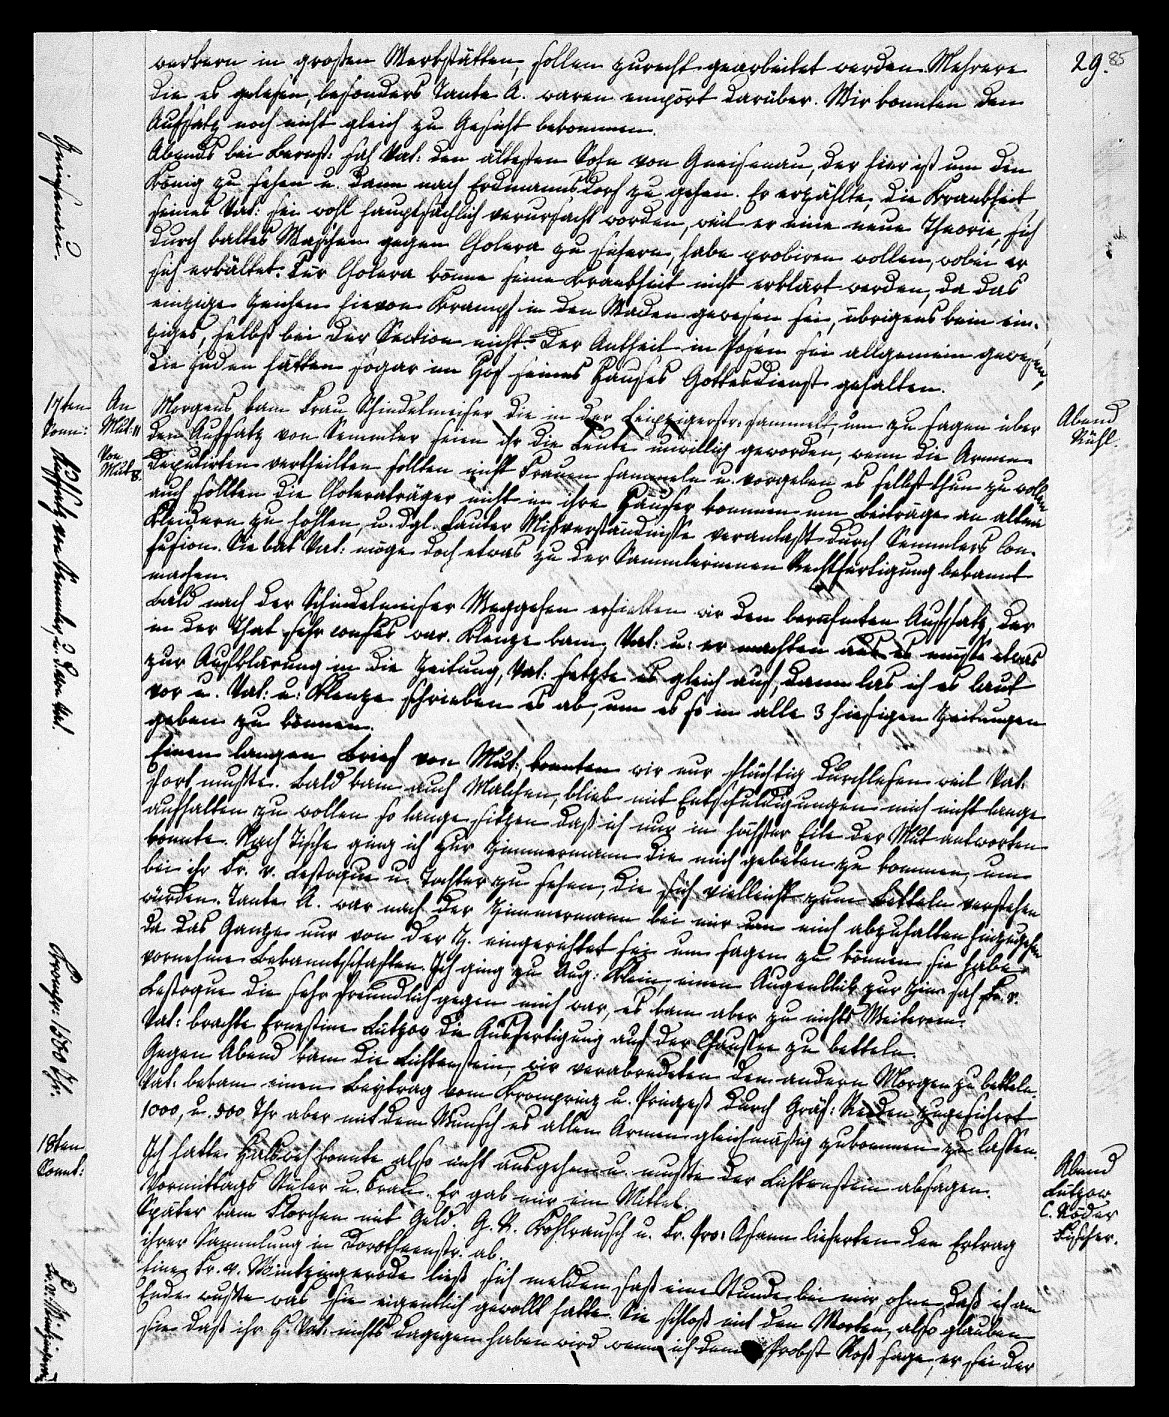 29. 85
werkern in großen Werkstätten, sollen zurecht gearbeitet werden. Mehrere
die es gelesen, besonders Tante A. waren empört darüber. Wir konnten den
Aufsatz noch nicht gleich zu Gesicht bekommen.
Abends bei Bernst: sah Vat: den ältesten Sohn von Gneisenau, der hier ist um den
König zu sehen u. dann nach Erdmannsdorf zu gehen. Er erzählte, die Krankheit
seines Vat: sei wohl hauptsächlich verursacht worden, weil er eine neue Theorie, sich
durch kaltes Waschen gegen Cholera zu sichern, habe probiren wollen, wobei er
sich erkältet. Für Cholera könne seine Krankheit nicht erklärt werden, da das
einzige Zeichen hievon Krampf in den Waden gewesen sei, übrigens kein ein-
ziges, selbst bei der Section nicht. Der Antheil in Posen sei allgemein gewesen,
die Juden hätten sogar im Hof seines Hauses Gottesdienst gehalten.
Gneisenau.
17ten
Sonn:
An
Mut. 11
Von
Mut. 8.
Abend
Rühl.
Morgens kam Frau Schindelmeiser die in der Leipzigerstr. sammelt, um zu sagen über
den Aufsatz von Semmler seien ihr die Leute unwillig geworden, wenn die Armen-
deputirten vertheilten sollten nicht Frauen sammeln u. vorgeben es selbst thun zu wollen
auch sollten die Choleraträger nicht in ihre Häuser kommen um Beiträge an alten
Kleidern zu holen, u. dgl. lauter Mißverständnisse veranlaßt durch Semmlers Con-
fusion. Sie bat Vat: möge doch etwas zu der Sammlerinnen Rechtfertigung bekannt
machen.
Bald nach der Schindelmeiser Weggehen erhielten wir den berühmten Aufsatz, der
in der That sehr confus war. Klenze kam, Vat: u: er machten aus es müsse etwas
zur Aufklärung in die Zeitung, Vat: setzte es gleich auf, dann las ich es laut
vor u. Vat: u: Klenze schrieben es ab, um es so in alle 3 hiesigen Zeitungen
geben zu können.
Aufsatz von Semmler u. dem Vat.
Einen langen Brief von Mut: konnten wir nur flüchtig durchlesen weil Vat.
fort mußte. Bald kam auch Malchen, blieb mit Entschuldigungen mich nicht lange
aufhalten zu wollen so lange sitzen daß ich nur in höchster Eile der Mut antworten
konnte. Nach Tische ging ich zur Zimmermann die mich gebeten zu kommen, um
bei ihr Fr. v. Lestoque u. Tochter zu sehen, die sich vielleicht zum Betteln verstehen
würden. Tante A. war nach der Zimmermann bei mir um mich abzuhalten hinzugehen
da das Ganze nur von der Z. eingerichtet sei um sagen zu können sie habe
vornehme Bekanntschaften. Ich ging zu Aug: Klein, einen Augenblick zur Zim: sah Fr. v.
Lestoque die sehr freundlich gegen mich war, es kam aber zu nichts Weiterem.
Vat: brachte Ernestine Lützow die Ausfertigung auf der Chaussee zu betteln.
Gegen Abend kam die Lichtenstein, wir verabredeten den andern Morgen zu betteln.
Vat. bekam einen Beytrag vom Kronprinz u. Prinzeß durch Gräf: Reden zugesichert
1000, u. 500 Thr aber mit dem Wunsch es allen Armen gleichmäßig zukommen zu lassen.
Kronpr: 1500 Thr.
18ten
Sonnt:
Abend
Lützow
C. Röder
Fischer.
Ich hatte Halsweh konnte also nicht ausgehen u. mußte der Lichtenstein absagen.
Vormittags Rüler u. Frau. Er gab mir ein Mittel.
Später kam Klorchen mit Geld. G. R. Kohlrausch u. Fr. Pro: Osann lieferten den Ertrag
ihrer Sammlung in Dorotheenstr. ab.
Eine Fr. v. Wintzingerode ließ sich melden, saß eine Stunde bei mir, ohne daß ich am
Ende wußte was sie eigentlich gewollt hatte. Sie schloß mit den Worten, also glauben
sie daß ihr H. Vat: nichts dagegen haben wird wenn ich dem Probst Roß sage, er sei der
Fr. v. Wintzingerode